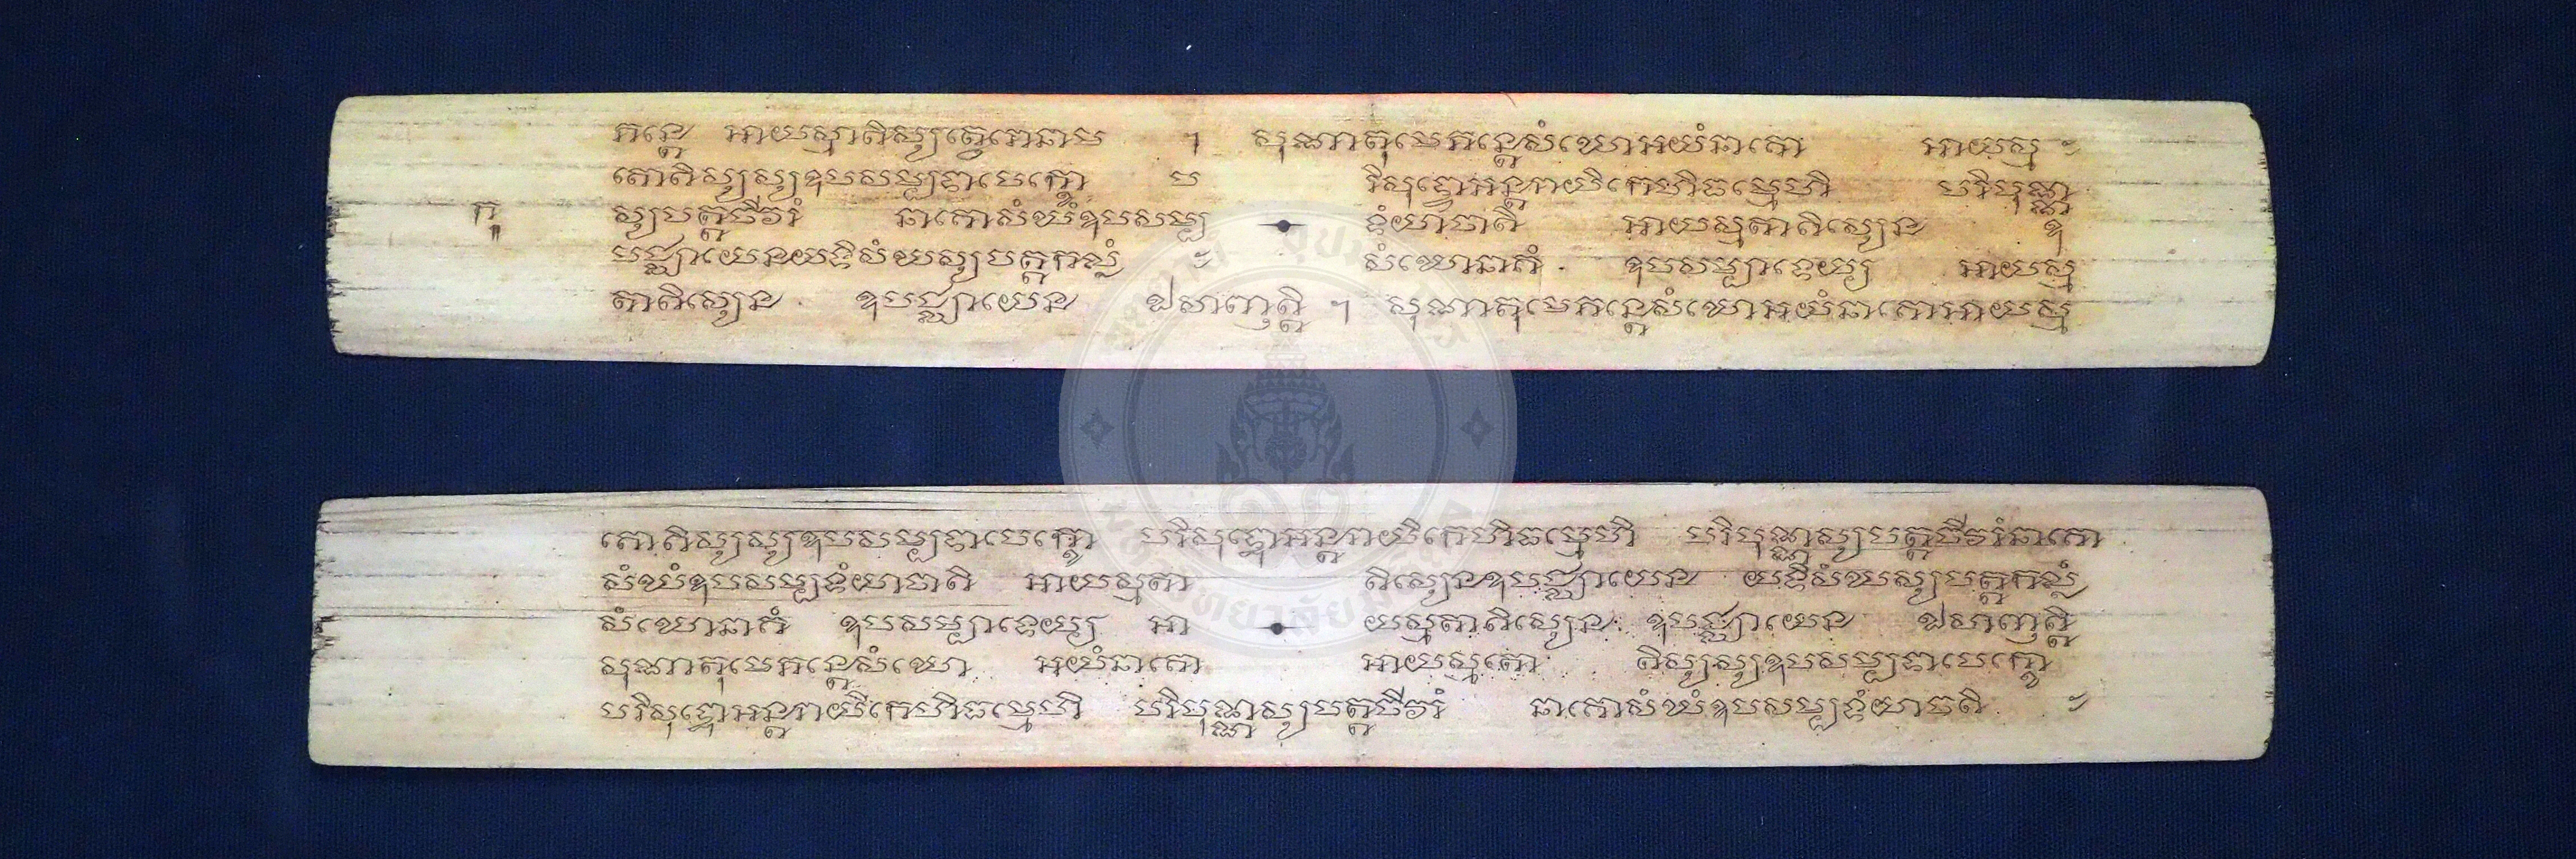 ភន្តេ អាយស្មាតិស្សត្ថេរោនាម ។ សុណាតុមេភន្តេសំឃោអយំនាគោ អាយស្ម
តោតិស្សស្សឧបសម្បទាបេក្ខោ ប រិសុទ្ធោអន្តរាយិកេហិធម្មេហិ បរិបុណ្ណ
ស្សបត្តចីវរំ នាគោសំឃំឧបសម្ប ទំយាចតិ អាយស្មតាតិស្សេន ឧ
បជ្ឈាយេនយទិសំឃស្សបត្តកល្លំ សំឃោនាគំ ឧបសម្បាទេយ្យ អាយស្ម
តាតិស្សេន ឧបជ្ឈាយេន ឯសាញត្តិ ។ សុណាតុមេភន្តេសំឃោអយំនាគោអាយស្ម
តោតិស្សស្សឧបសម្បទាបេក្ខោ បរិសុទ្ធោអន្តរាយិកេហិធម្មេហិ បរិបុណ្ណស្សបត្តចីវរំនាគោ
សំឃំឧបសម្បទំយាចតិ អាយស្មតា តិស្សេនឧបជ្ឈាយេន យទិសំឃស្សបត្តកល្លំ
សំឃោនាគំ ឧបសម្បាទេយ្យ អា យស្មតាតិស្សេន ឧបជ្ឈាយេន ឯសាញត្តិ
សុណាតុមេភន្តេសំឃោ អយំនាគោ អាយស្មតោ តិស្សស្សឧបសម្បទាបេក្ខោ
បរិសុទ្ធោអន្តរាយិកេហិធម្មេហិ បរិបុណ្ណស្សបត្តចីវរំ នាគោសំឃំឧបសម្បទំយាចតិ